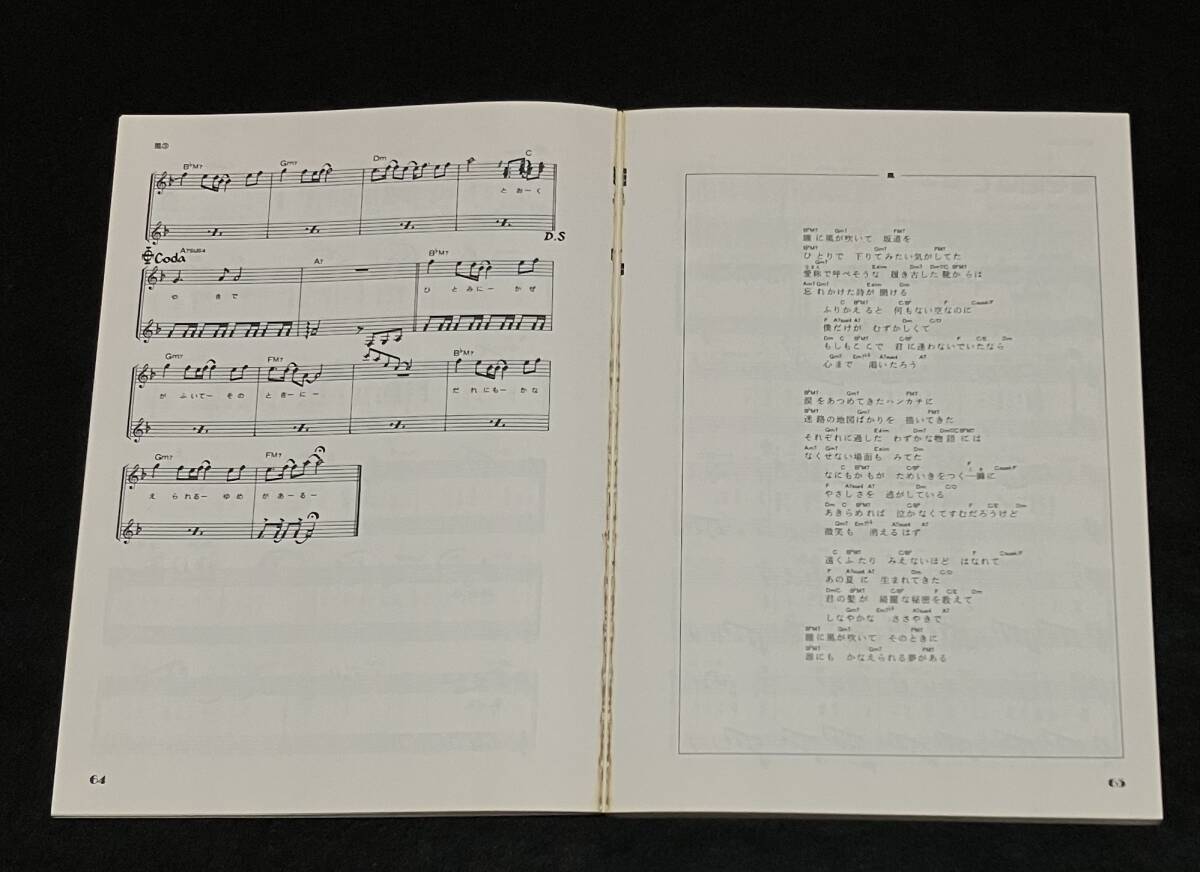 風③
B♭M7 Gm7 Dm C
とおーく
D.S
Coda A7sus4 A7 B♭M7
やきで ひとみにーかぜ
Gm7 FM7 B♭M7
がふいてーその ときにー だれにもーかな
Gm7 FM7
えられるーゆめ があーるー
64
風
B♭M7 Gm7 FM7
瞳に風が吹いて 坂道を
B♭M7 Gm7 FM7
ひとりで 下りてみたい気がしてた
Gm7 Edim Dm7 B♭M7
愛称で呼べそうな 履き古した靴からは
Am7 Gm7 Edim Dm
忘れかけた詩が 聞ける
C B♭M7 C/B♭ F
ふりかえると 何もない空なのに
F A7sus4 A7 Dm C/D
僕だけが むずかしくて
Dm C B♭M7 C/B♭ F C/E Dm
もしもここで 君に逢わないでいたなら
Gm7 A7sus4 A7
心まで 渇いたろう
B♭M7 Gm7 FM7
涙をあつめてきたハンカチに
B♭M7 Gm7 FM7
迷路の地図ばかりを 描いてきた
Gm7 Edim Dm7 B♭M7
それぞれに過した わずかな物語には
Am7 Gm7 Edim Dm
なくせない場面も みてた
C B♭M7 C/B♭ F
なにもかもが ためいきをつく一瞬に
F A7sus4 A7 Dm C/D
やさしさを 逃がしている
Dm C B♭M7 C/B♭ F C/E Dm
あきらめれば 泣かなくてすむだろうけど
Gm7 A7sus4 A7
微笑も 消えるはず
C B♭M7 C/B♭ F
遠くふたり みえないほど はなれて
F A7sus4 A7 Dm C/D
あの夏に 生まれてきた
B♭M7 C/B♭ F C/E Dm
君の髪が 綺麗な秘密を教えて
Gm7 A7sus4 A7
しなやかな ささやきで
B♭M7 Gm7 FM7
瞳に風が吹いて そのときに
B♭M7 Gm7 FM7
誰にも かなえられる夢がある
65